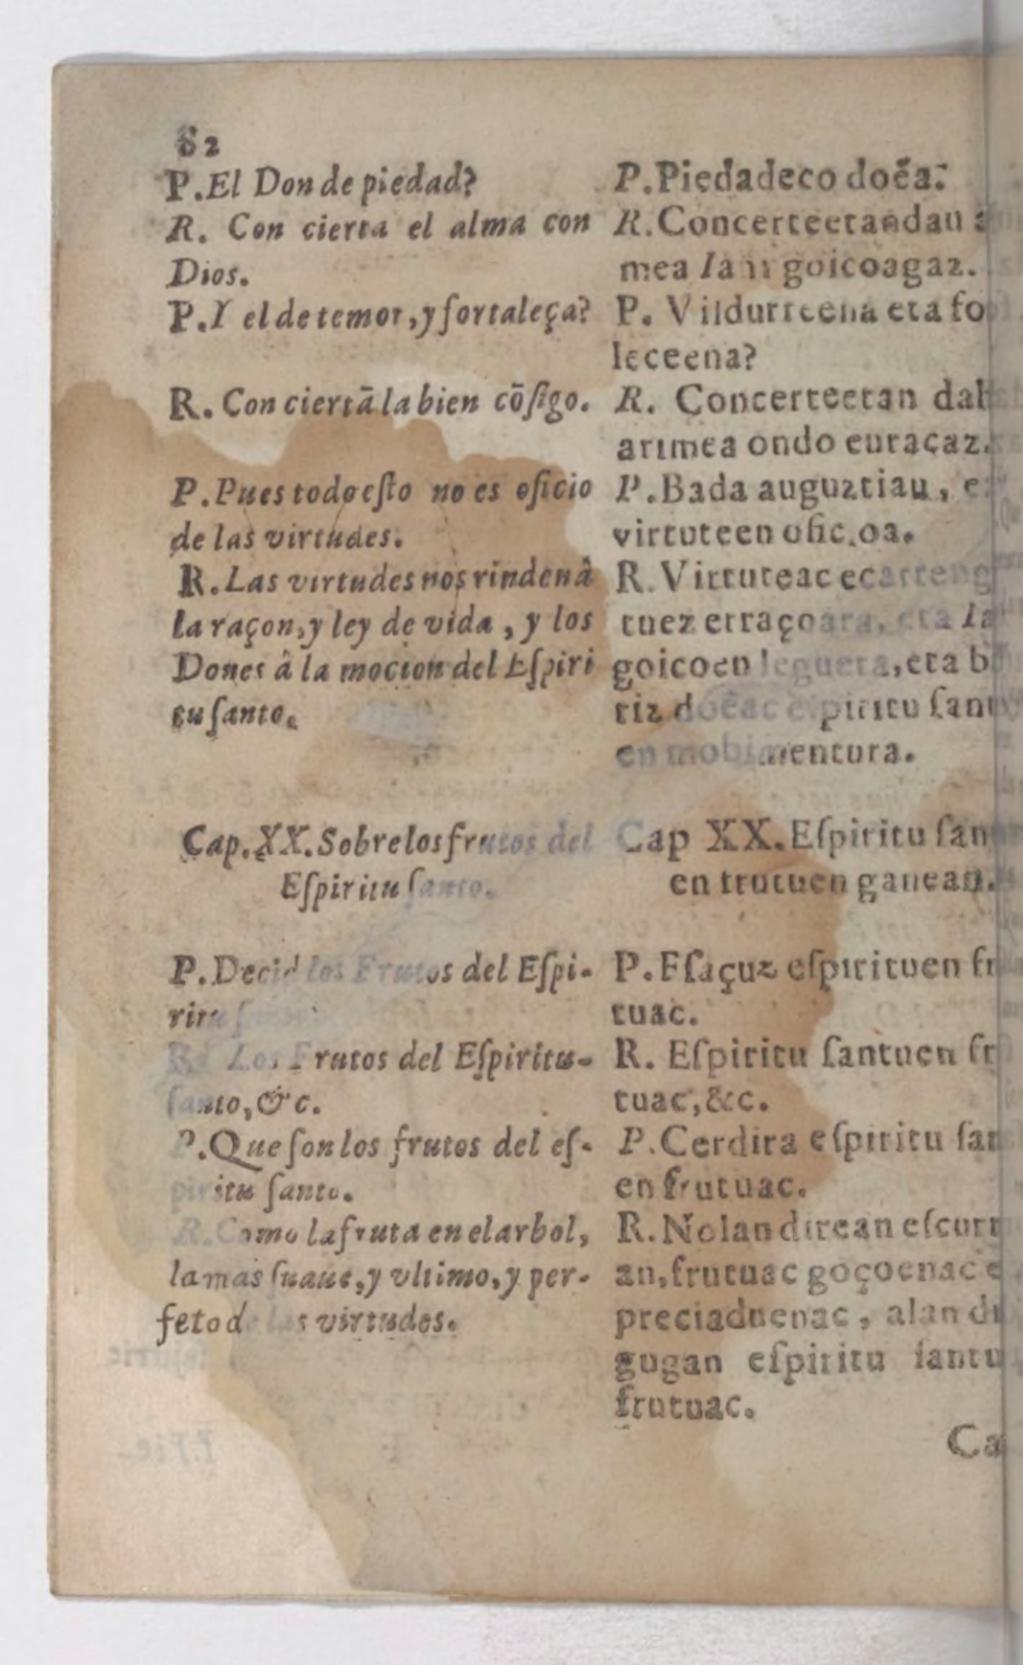 82
P. El Don de piedad?
R. Con cierta el alma con
Dios.
P. Y el de temor, y fortaleça?
R. Con ciertā la bien cōſigo.
P. Pues todo eſto no es oficio
de las virtudes.
R. Las virtudes nos rinden â
la raçon, y ley de vida, y los
Dones â la mocion del Eſpiri
tu ſanto.
Cap. XX. Sobre los frutos del
Eſpiritu ſanto.
P. Decid los Frutos del Eſpi-
ritu
R. Los Frutos del Eſpiritu-
ſanto, &c.
P. Que ſon los frutos del eſ-
piritu ſanto.
R. Como la fruta en el arbol,
la mas ſuaue, y vltimo, y per-
feto de las virtudes.
P. Piedadeco doêa?
R. Concerteetandau
mea goicoagaz.
P. Vildurteena eta fo
leceena?
R. Concerteetan dab
arimea ondo euraçaz.
P. Bada auguztiau,
virtuteen oficioa.
R. Virtuteac ecarteng
tuez erraçoara, eta Ia
goicoen legueta, eta b
tiz doêac eſpiritu ſant
en mobimentura.
Cap XX. Eſpiritu ſan
en trutuen ganean.
P. Eſaçuz eſpirituen fr
tuac.
R. Eſpiritu ſantuen fr
tuac, &c.
P. Cerdira eſpiritu ſan
en frutuac.
R. Nolan direan eſcur
an, frutuac goçoenac e
preciaduenac, alan di
gugan eſpiritu ſantu
frutuac.
Ca